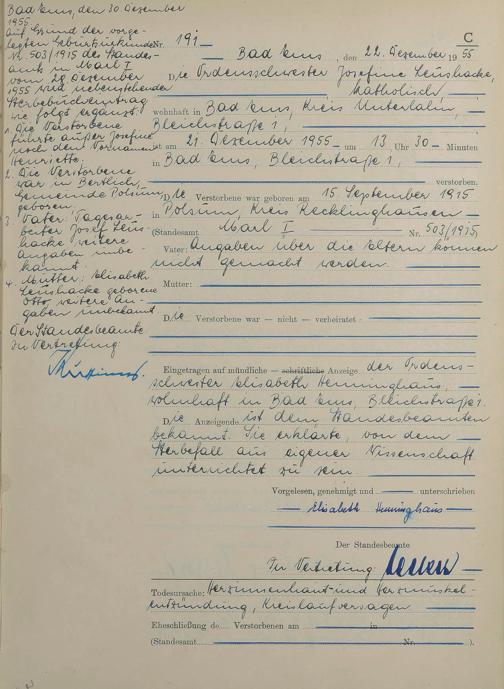 Bad Ems, den 30. Dezember
1955
auf Grund der vorge-
legten Geburtsurkunde
Nr. 503/1915 des Standes-
amts in Marl I
vom 29. Dezember
1955 wird nebenstehender
Sterbebucheintrag
wie folgt ergänzt:
1. Die Verstorbene
führte außer Josefine
noch den Vornamen
Henriette.
2. Die Verstorbene
war in Bertlich,
Gemeinde Polsum,
geboren.
3. Vater: Tagesar-
beiter Josef Leus-
hacke weitere
Angaben unbe-
kannt.
4. Mutter: Elisabeth
Leushacke geborene
Otto, weitere An-
gaben unbekannt
Der Standesbeamte
In Vertretung:
C
Nr. 191
Bad Ems, den 22. Dezember 1955
Die Ordensschwester Josefine Leushacke,
katholisch
wohnhaft in Bad Ems, Kreis Unterlahn,
Bleichstraße 1,
ist am 21. Dezember 1955 um 13 Uhr 30 Minuten
in Bad Ems, Bleichstraße 1,
verstorben.
Die Verstorbene war geboren am 15. September 1915
in Polsum, Kreis Recklinghausen
(Standesamt Marl I Nr. 503/1915
Vater: Angaben über die Eltern können
nicht gemacht werden.
Mutter:
Die Verstorbene war — nicht — verheiratet
Eingetragen auf mündliche — schriftliche Anzeige der Ordens-
schwester Elisabeth Henninghaus,
wohnhaft in Bad Ems, Bleichstraße 1.
Die Anzeigende ist dem Standesbeamten
bekannt. Sie erklärte, von dem
Sterbefall aus eigener Wissenschaft
unterrichtet zu sein.
Vorgelesen, genehmigt und unterschrieben
Elisabeth Henninghaus
Der Standesbeamte
In Vertretung:
Todesursache: Herzinnenhaut- und Herzmuskel-
entzündung, Kreislaufversagen
Eheschließung de Verstorbenen am in
(Standesamt Nr. ).